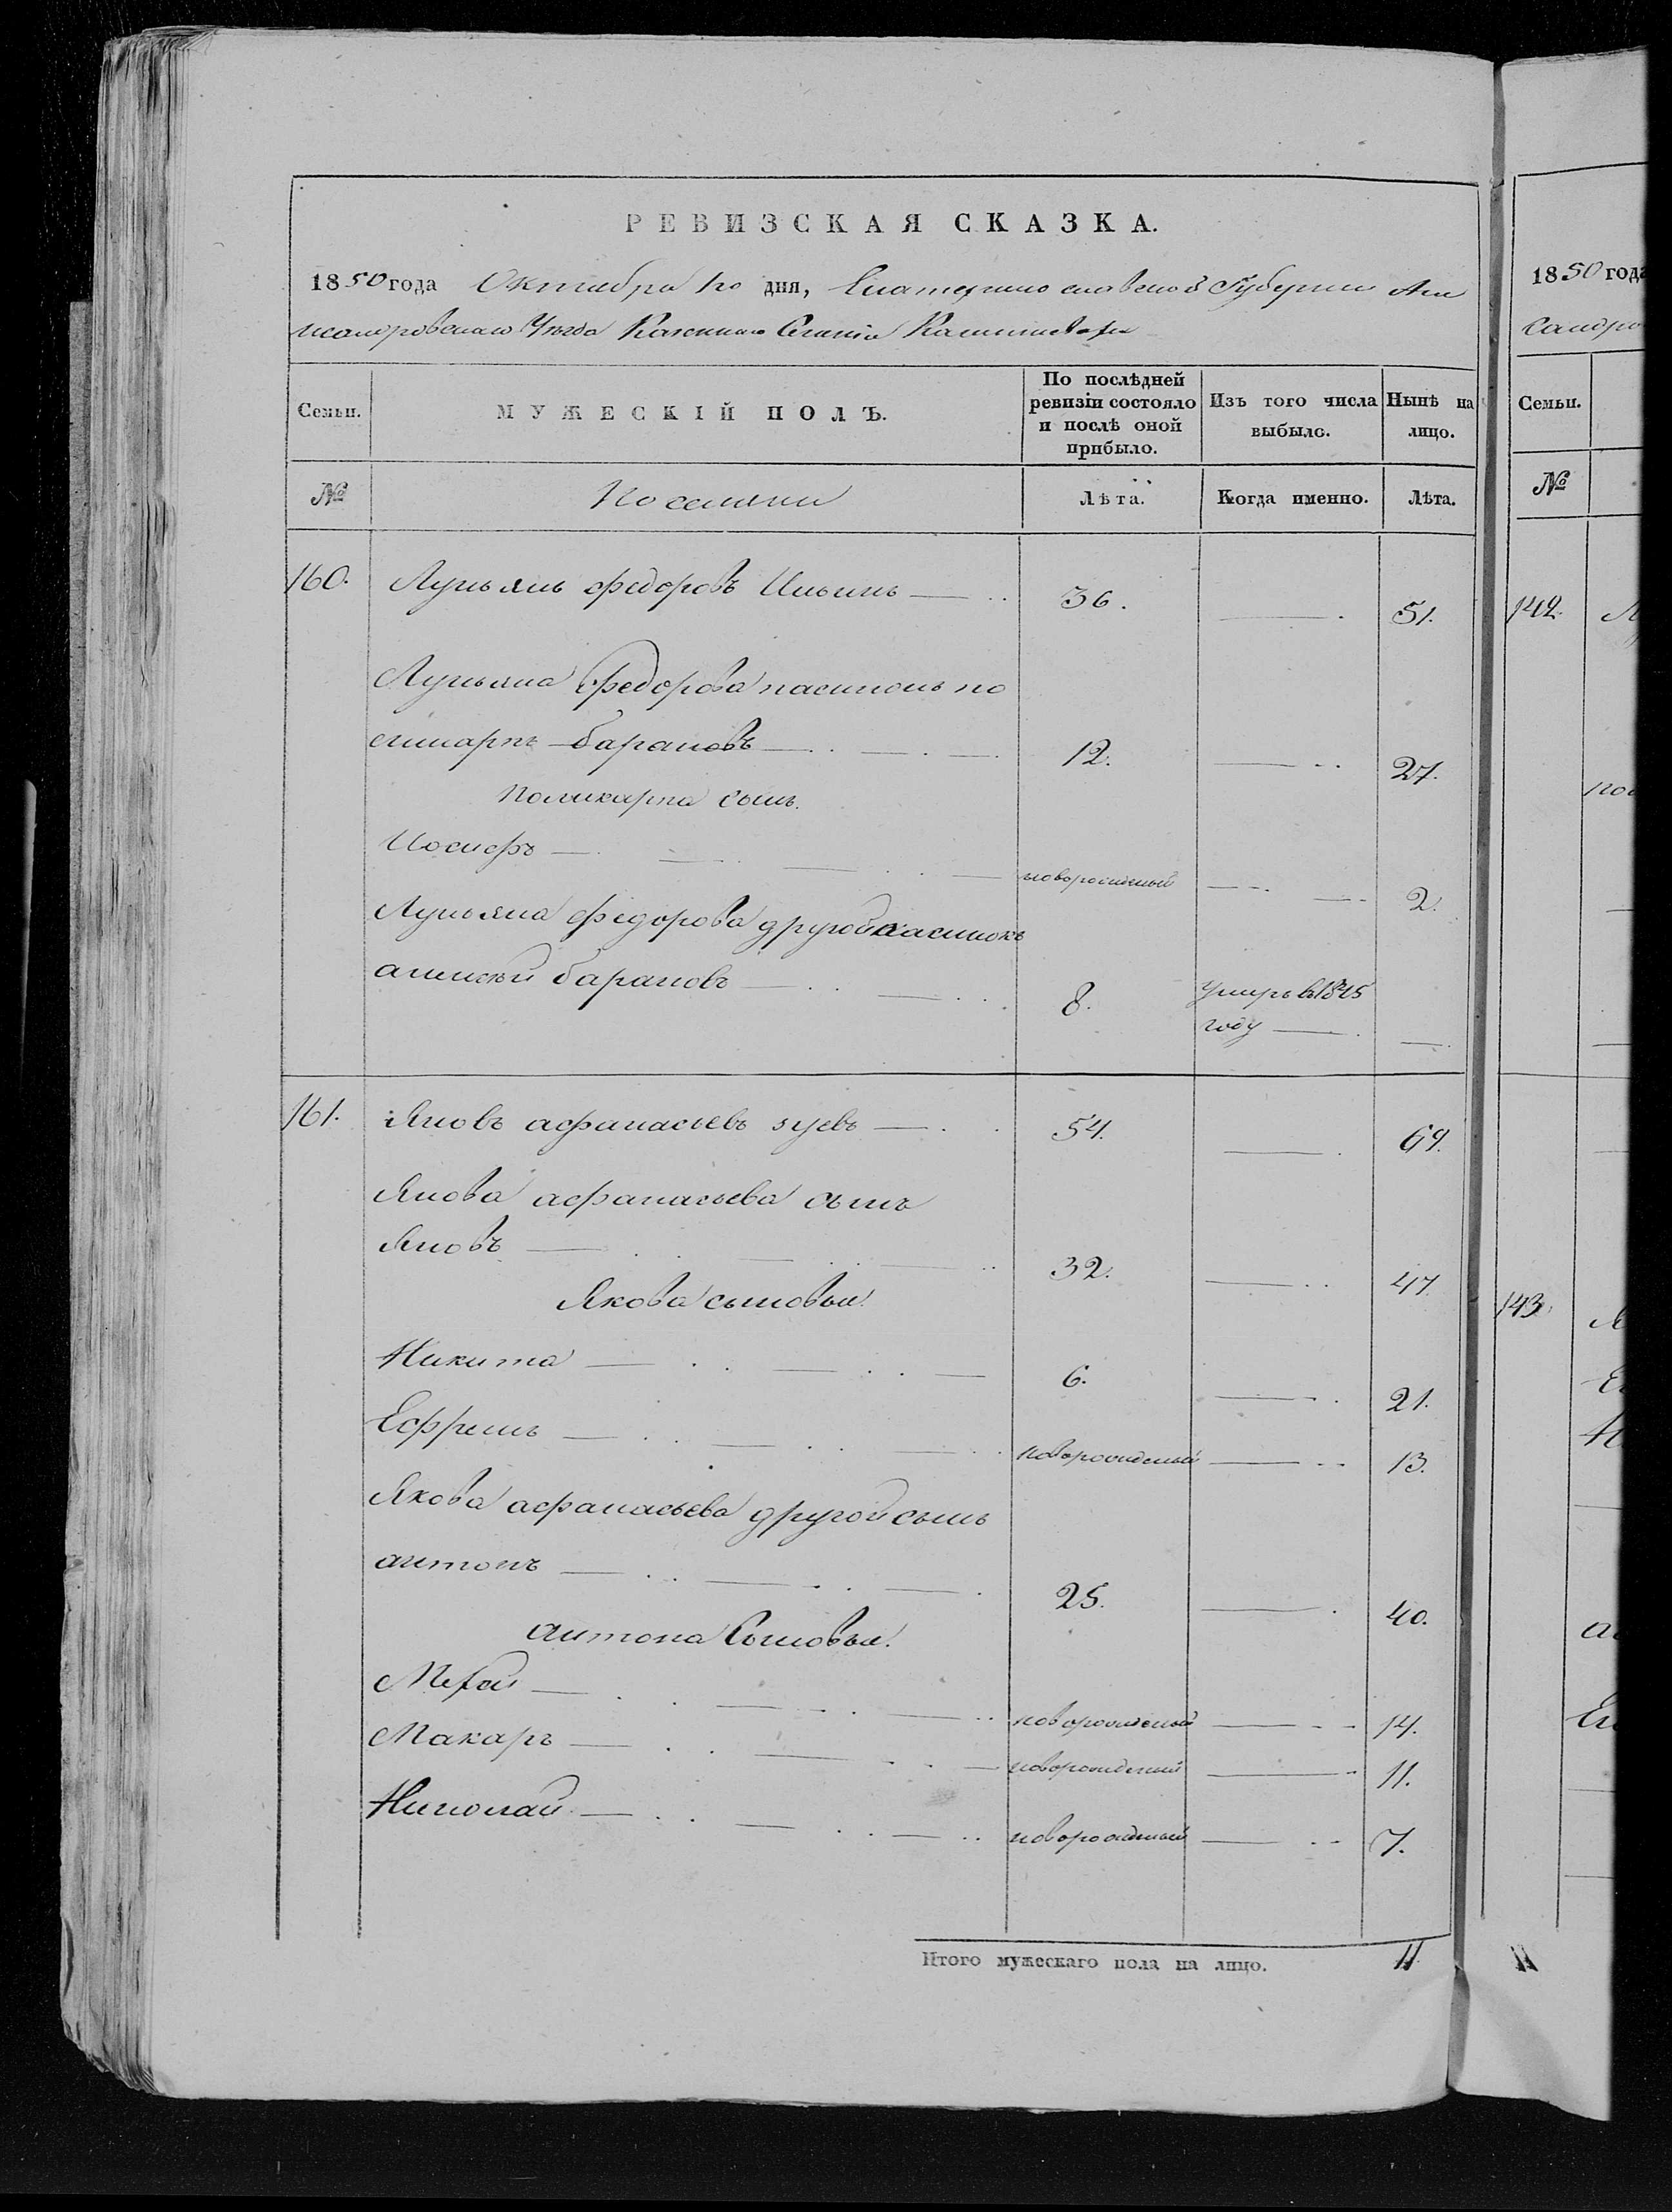 РЕВИЗСКАЯ СКАЗКА.
1850 года Октября 10 дня, Екатеринославской Губернии Але
ксандровскаго Уезда Казеннаго Селенія
Семьи. МУЖЕСКІЙ ПОЛЪ. По послѣдней ревизіи состояло и послѣ оной прибыло. Изъ того числа выбыло. Нынѣ на лицо.
№ Поселяни Лѣта. Когда именно. Лѣта.
160. Лукьянъ Федоровъ Ильинъ 36. 51.
Лукьяна Федорова пасинокъ по
ликарпъ барановъ 12. 27.
Поликарпа сынъ.
Иосифъ новорожденый 2.
Лукьяна Федорова другой пасинокъ
алексей барановъ 8. Умиръ в 1845
году
161. Яковъ афанасьевъ зуевъ 54. 69.
Якова афанасьева сынъ
Яковъ 32. 47.
Якова сыновья.
Никита 6. 21.
Ефремъ новорожденый 13.
Якова афанасьева другой сынъ
антонъ 25. 40.
антона Сыновья.
новорожденый 14.
Макаръ новорожденый 11.
Николай новорожденый 7.
Итого мужескаго пола на лицо. 11
1850 года
сандро
Семьи.
№
142.
143.
11